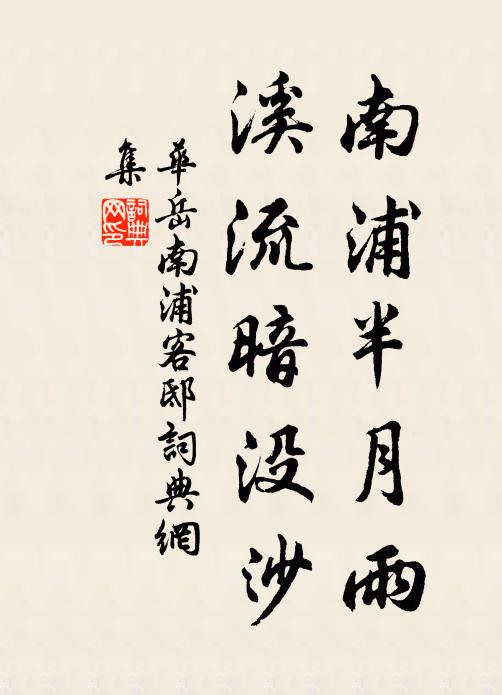 南浦半月雨
溪流暗没沙
華岳南浦客邸詞典網
集
詞典
网印